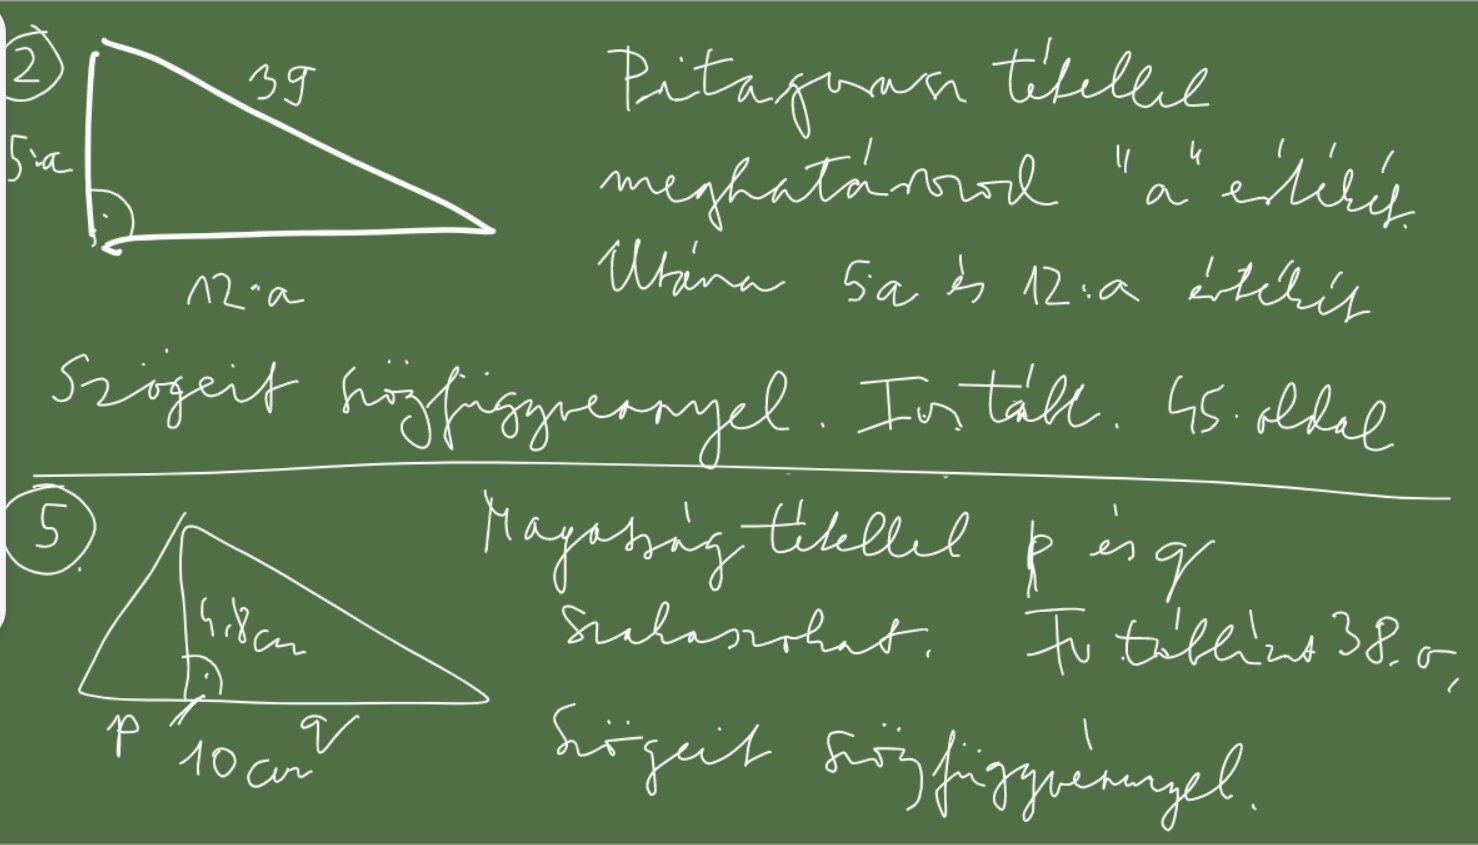 2
39
5·a
12·a
Pitagorasz tétellel
meghatározod "a" értékét.
Utána 5a és 12·a értékét
Szögeit szögfüggvénnyel. Fv. tábl. 45. oldal
5
4,8cm
p q
10 cm
Magasság tétellel p és q
szakaszokat. Fv táblázat 38. o,
Szögeit szögfüggvénnyel.